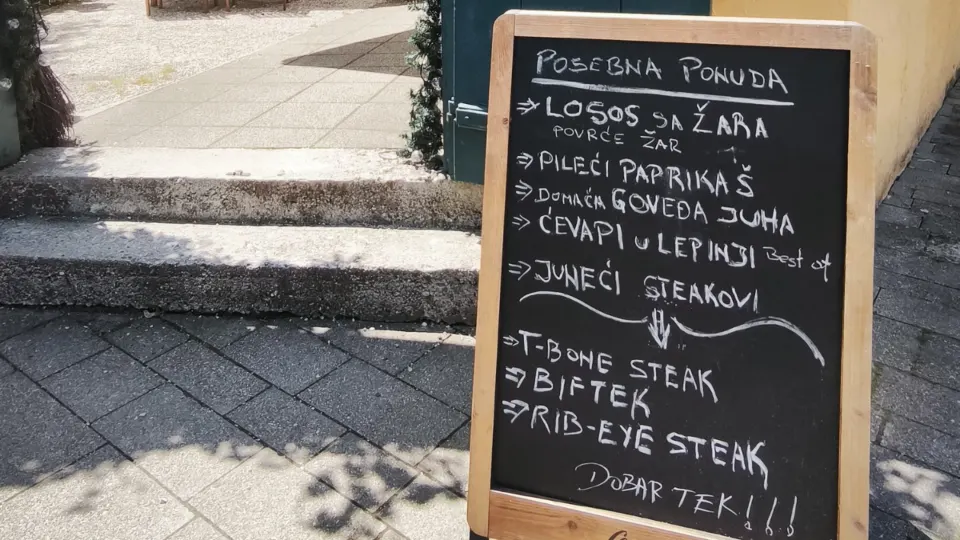 POSEBNA PONUDA
⇒ LOSOS SA ŽARA
POVRĆE ŽAR
⇒ PILEĆI PAPRIKAŠ
⇒ DOMAĆA GOVEĐA JUHA
⇒ ĆEVAPI U LEPINJI Best of
⇒ JUNEĆI STEAKOVI
⇒ T-BONE STEAK
⇒ BIFTEK
⇒ RIB-EYE STEAK
DOBAR TEK!!!